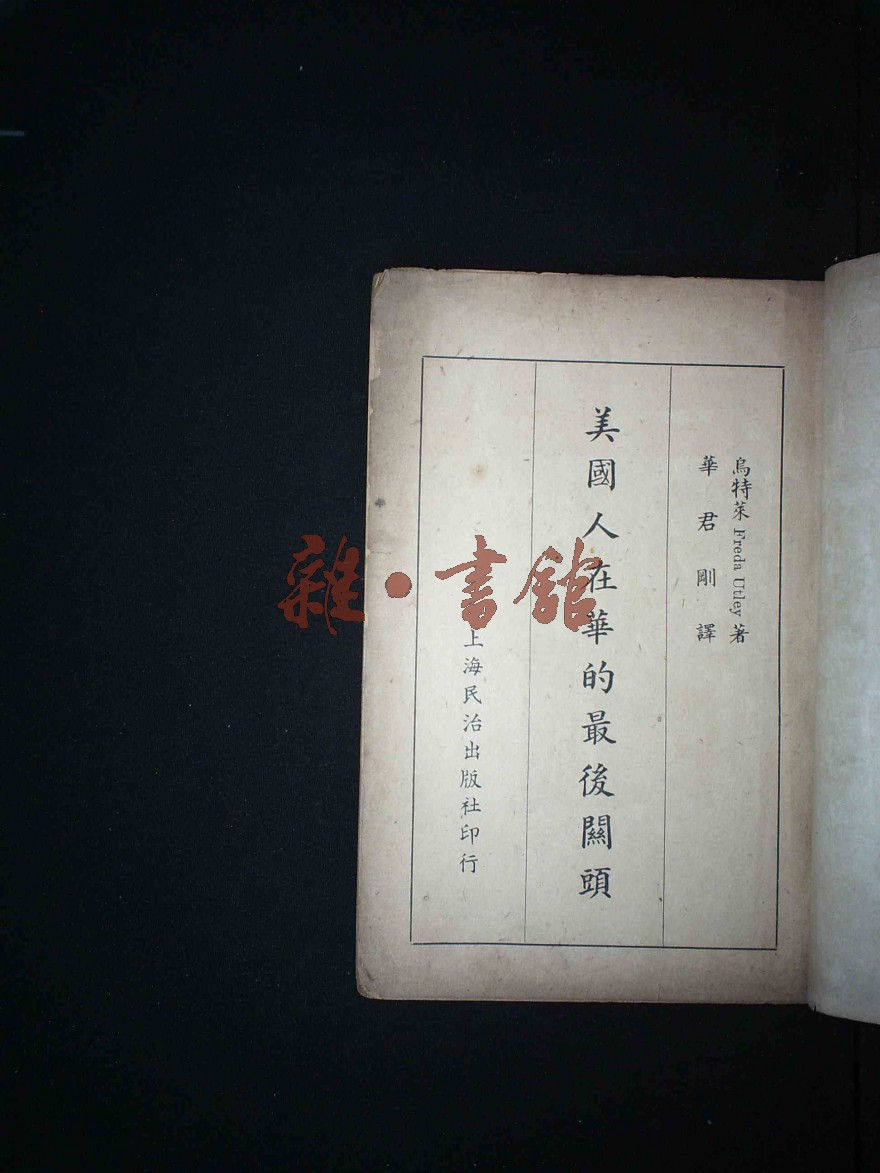 烏特萊 Freda Utley 著
華君剛譯
美國人在華的最後關頭
上海民治出版社印行
雜·書館